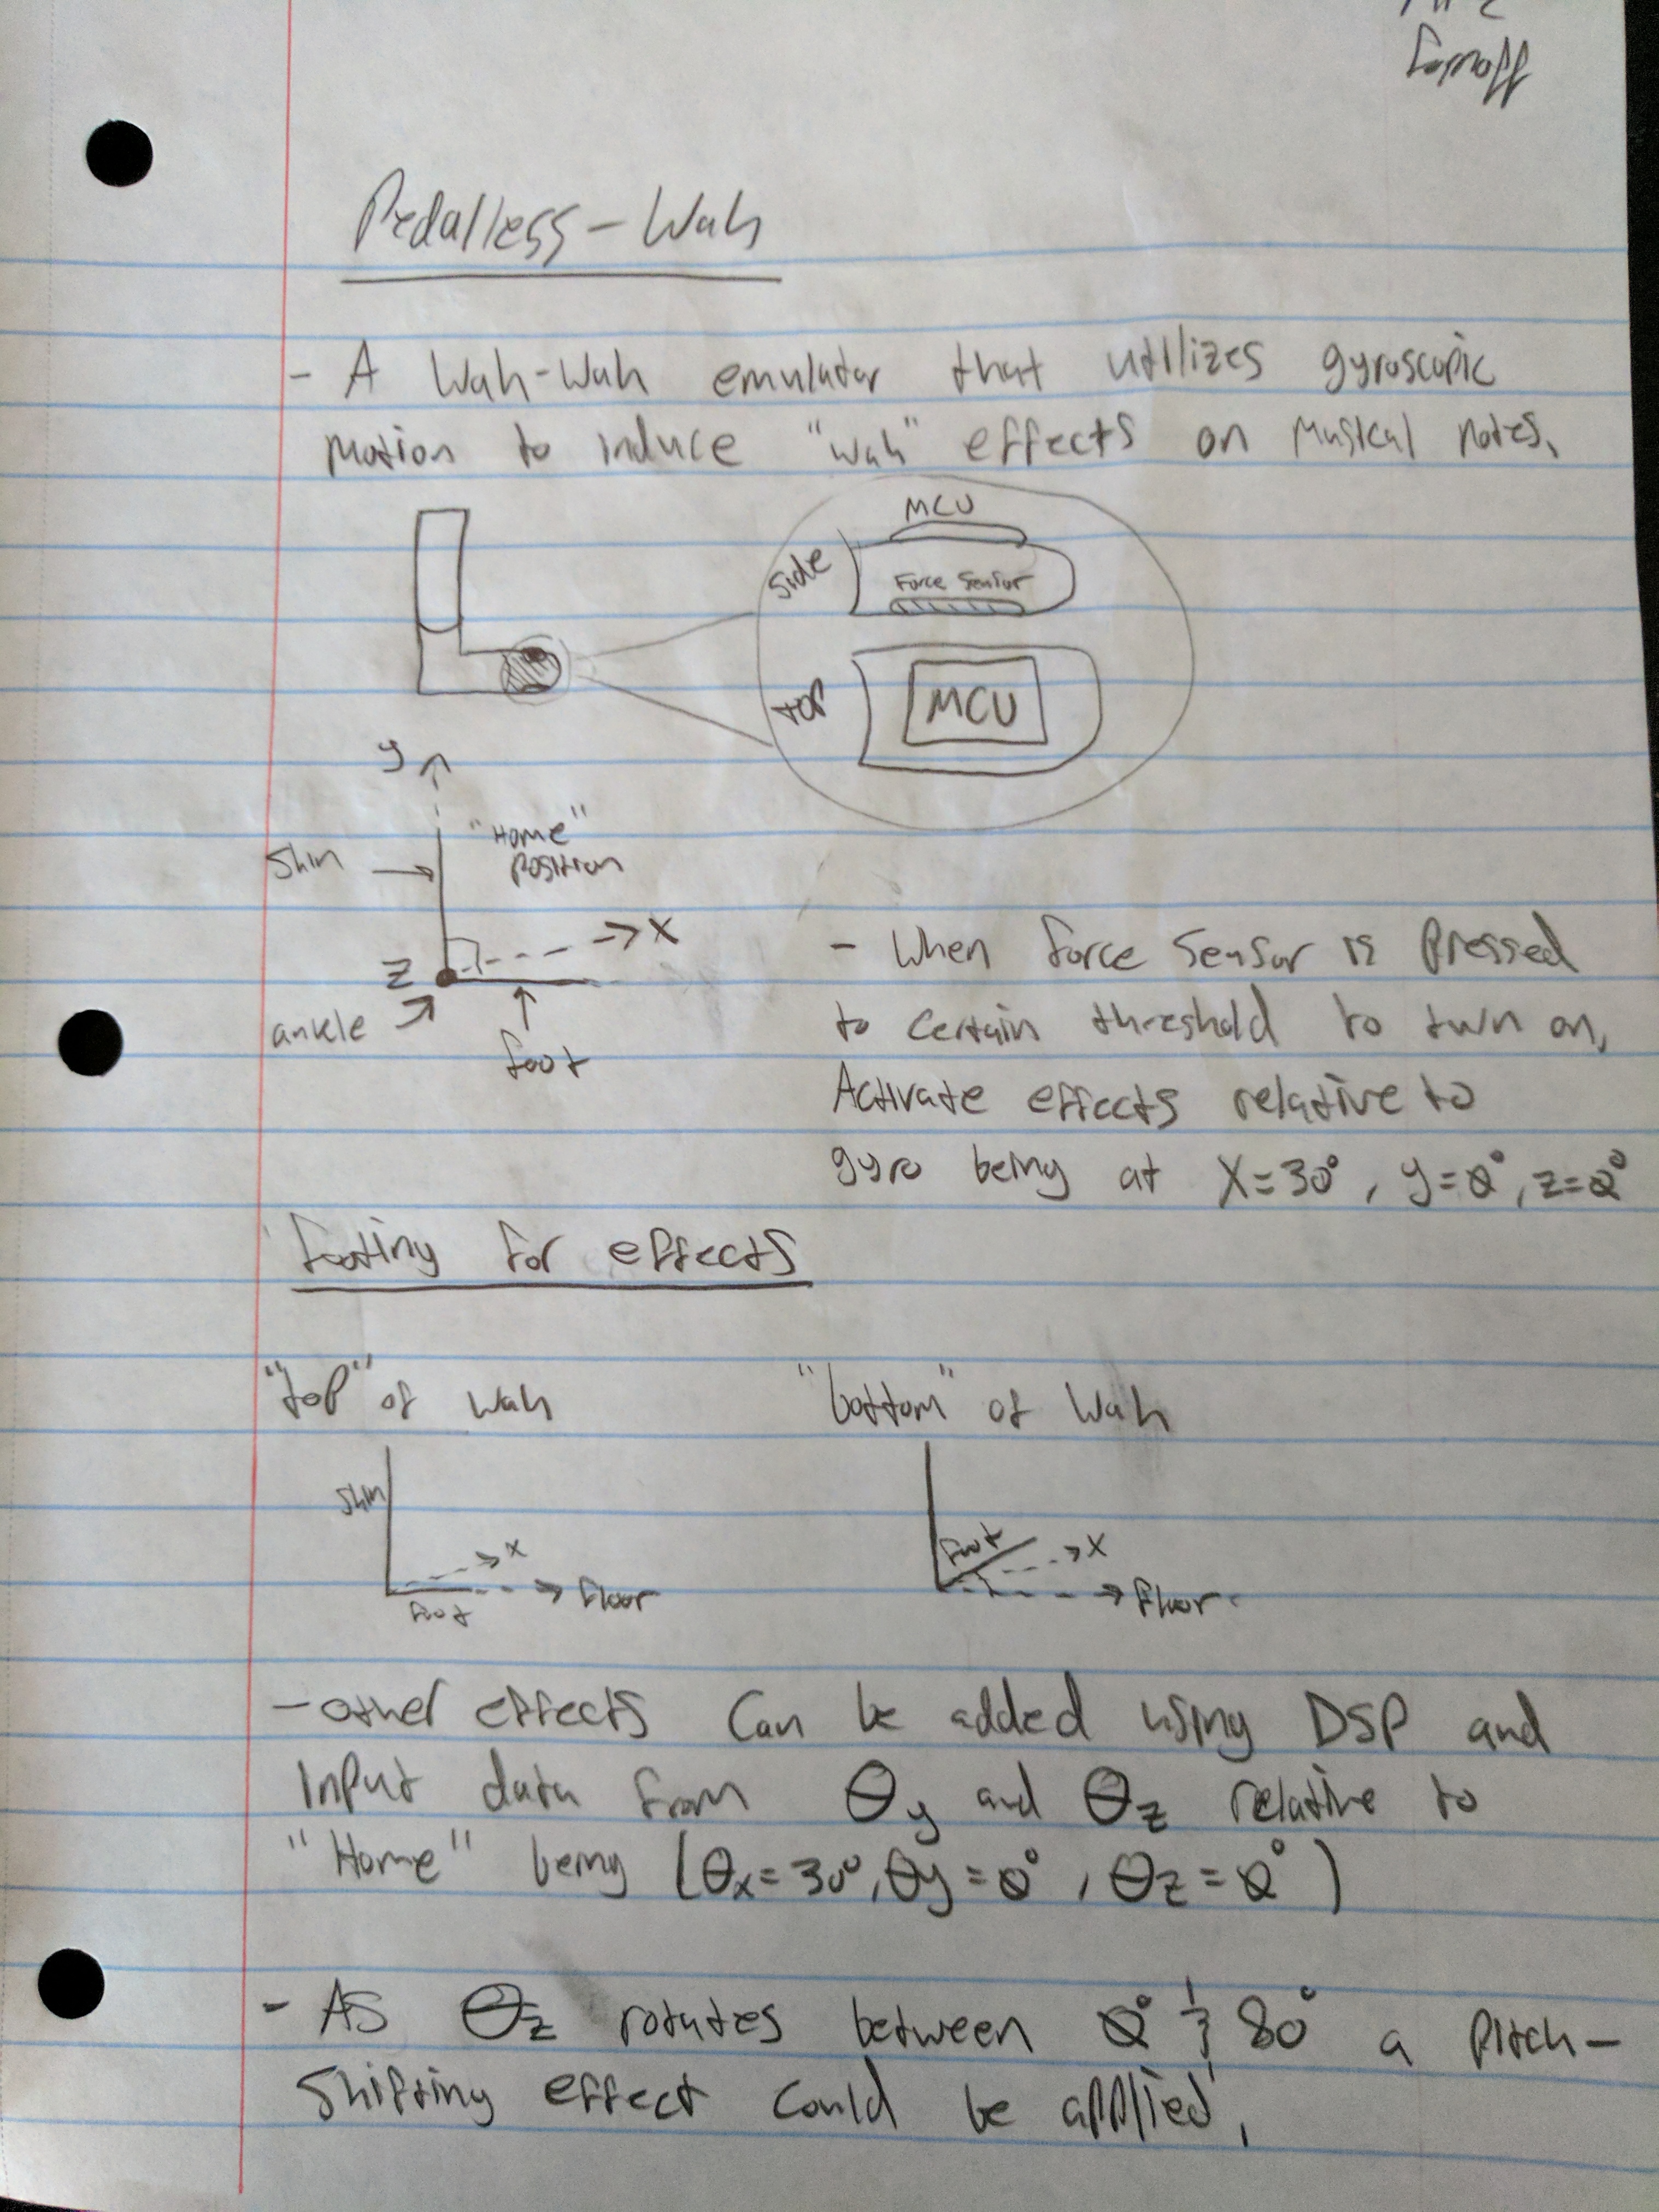 Pedalless-Wah
- A Wah-Wah emulator that utilizes gyroscopic
motion to induce "wah" effects on musical notes.
MCU
Side
Force Sensor
top
MCU
y
"Home"
Position
Shin
X
Z
ankle
foot
- When force sensor is pressed
to certain threshold to turn on,
Activate effects relative to
gyro being at X=30°, y=0°, z=0°
footing for effects
"top" of wah
"bottom" of Wah
Shin
X
foot
floor
foot
X
floor
- other effects can be added using DSP and
input data from θy and θz relative to
"Home" being (θx=30°, θy=0°, θz=0°)
- As θz rotates between 0° & 80° a pitch-
shifting effect could be applied.